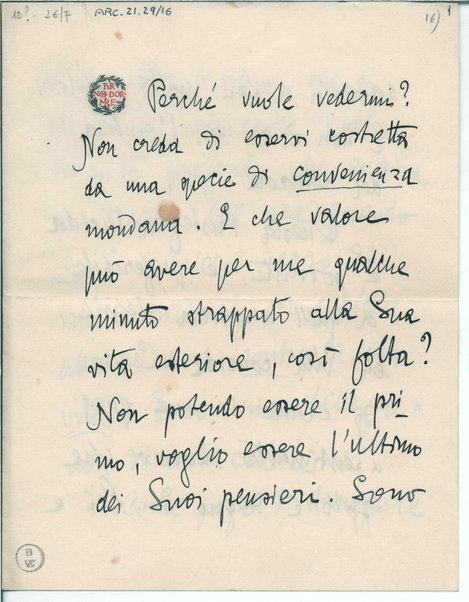 12? - 26/7 ARC.21.29/16 16) 1
PER
NON DOR
MIRE
Perché vuole vedermi?
Non creda di esservi costretta
da una specie di convenienza
mondana. E che valore
può avere per me qualche
minuto strappato alla Sua
vita esteriore, così folta?
Non potendo essere il pri-
mo, voglio essere l'ultimo
dei Suoi pensieri. Sono
B
VE